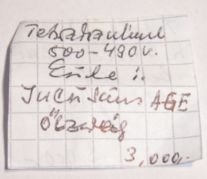 Tetradrachme
500-490 v.
Eule i.
Incusum AGE
Ölzweig
3,000.-